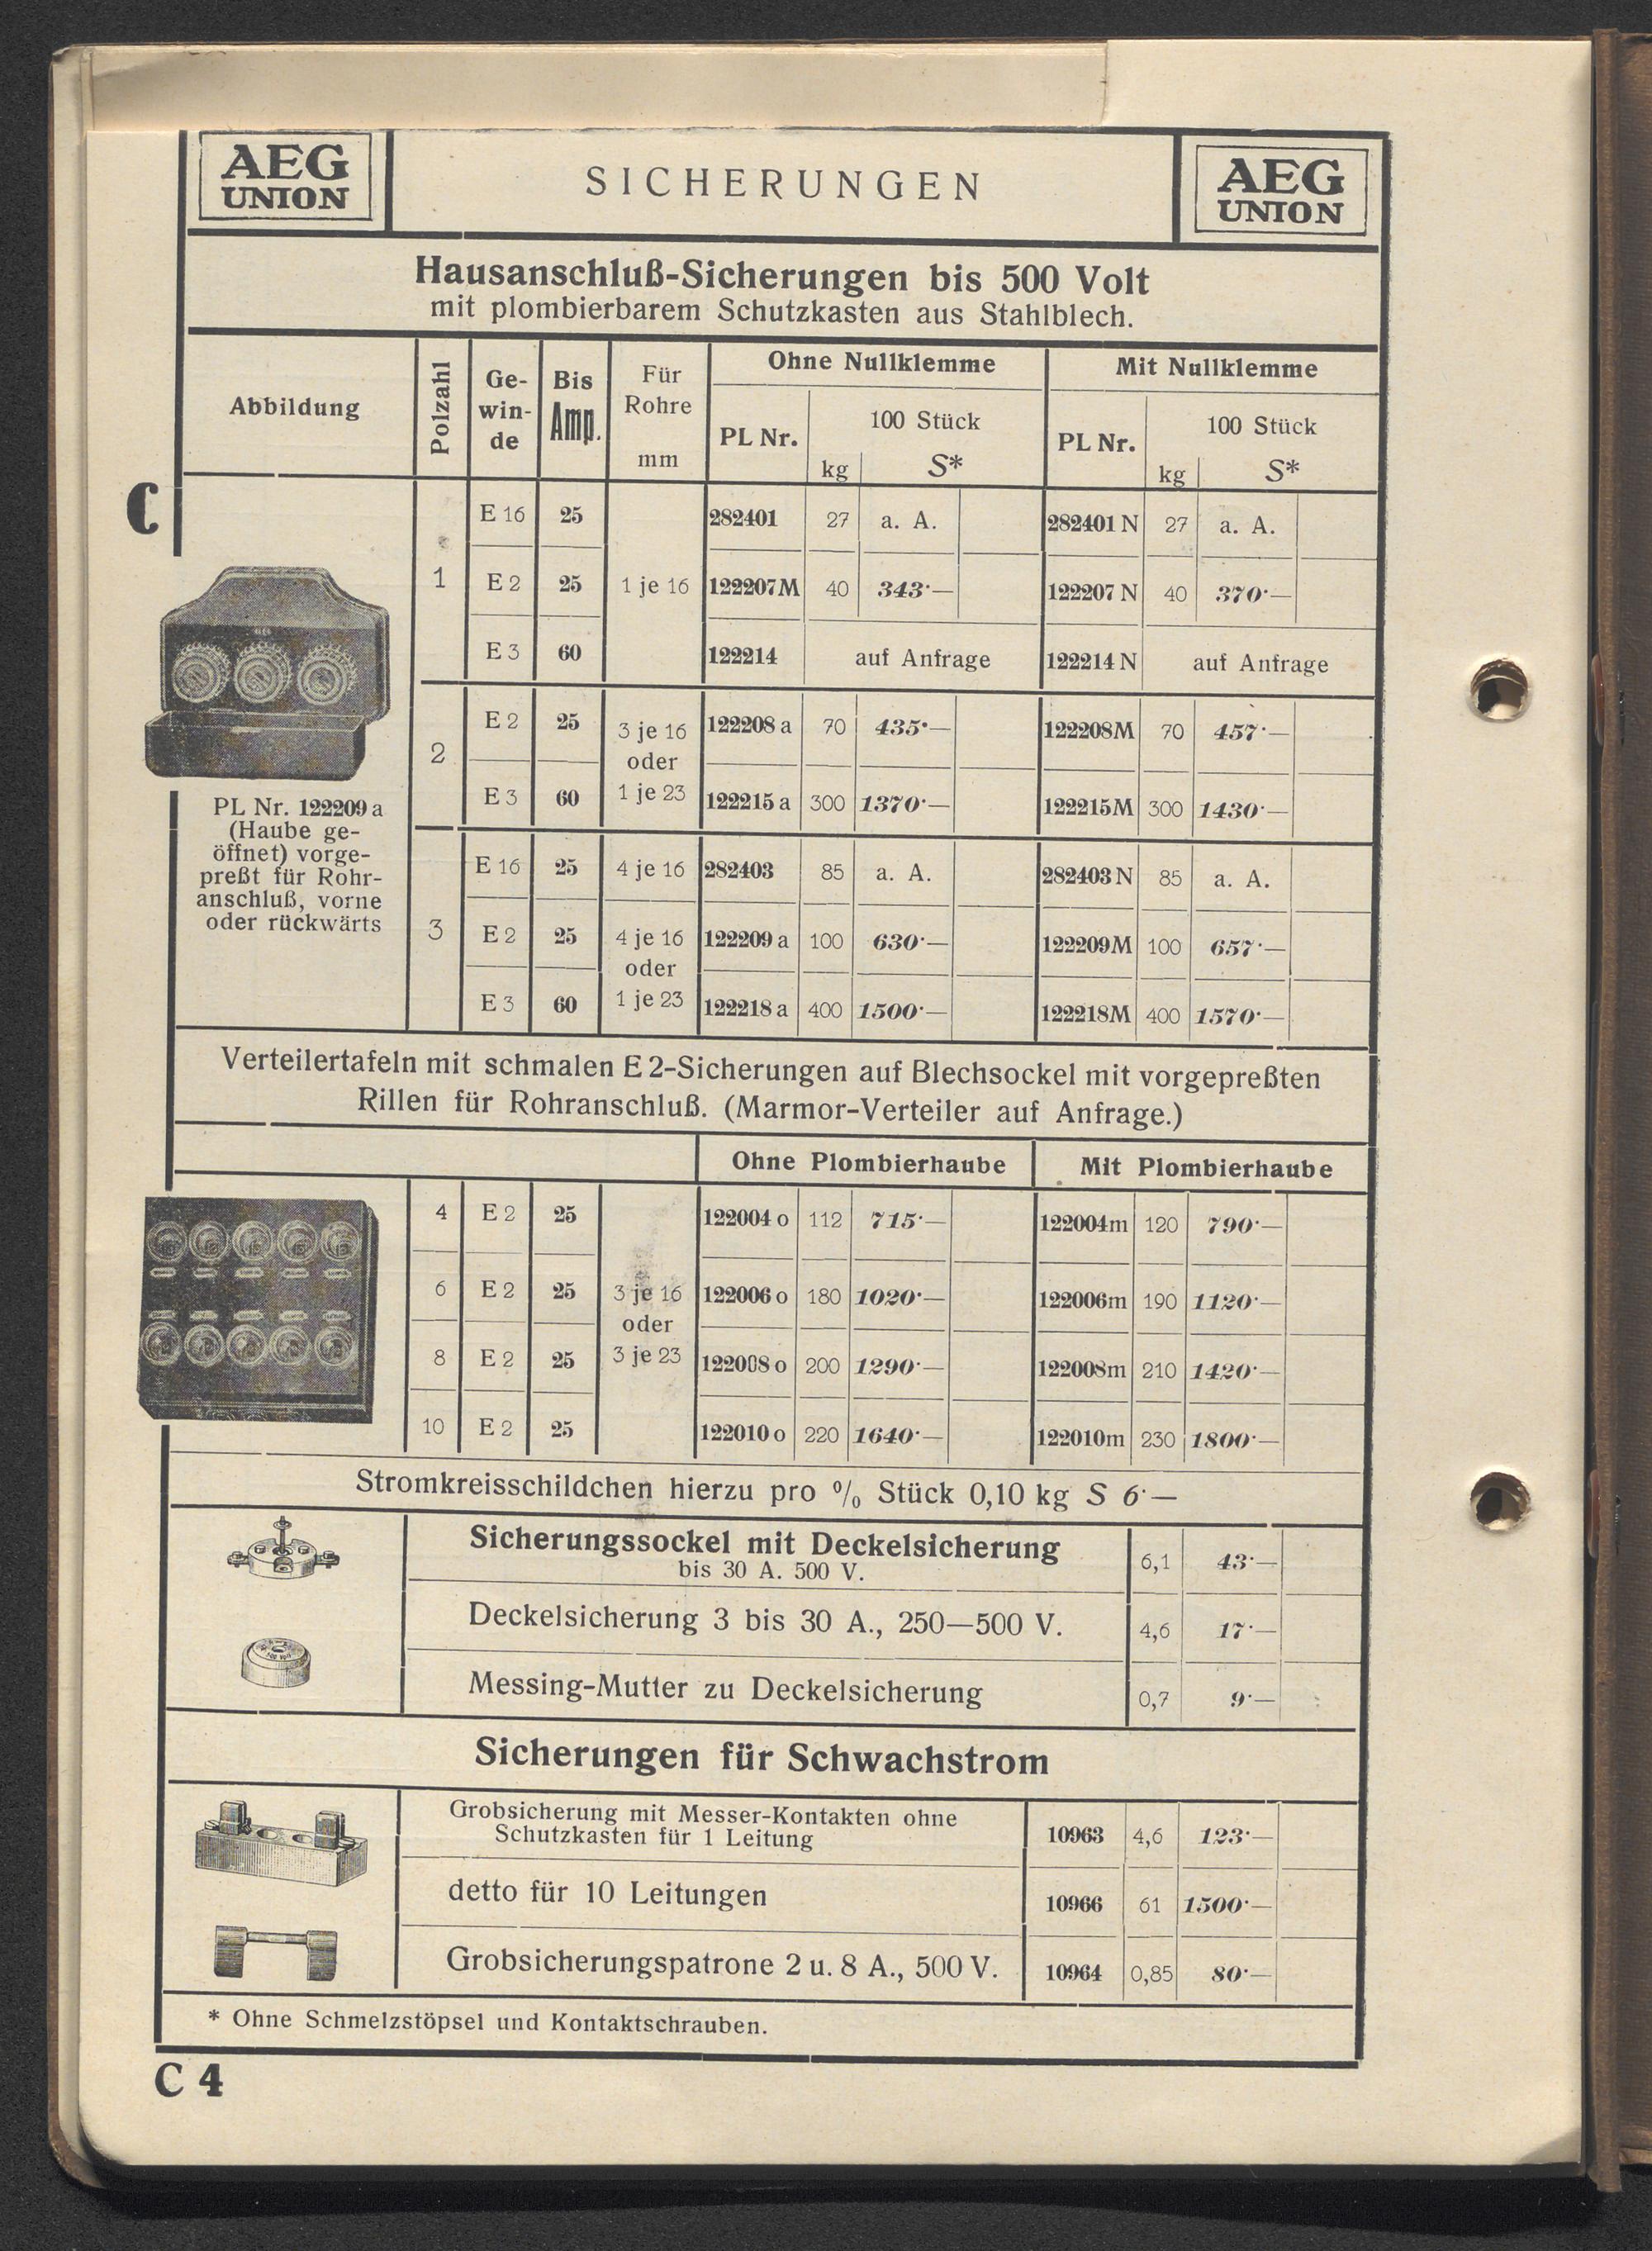 AEG
UNION
SICHERUNGEN
AEG
UNION
Hausanschluß-Sicherungen bis 500 Volt
mit plombierbarem Schutzkasten aus Stahlblech.
Abbildung Polzahl Ge-win-de Bis Amp. Für Rohre mm Ohne Nullklemme Mit Nullklemme
PL Nr. 100 Stück kg S* PL Nr. 100 Stück kg S*
C
1
E 16 25 282401 27 a. A. 282401 N 27 a. A.
E 2 25 1 je 16 122207M 40 343·— 122207 N 40 370·—
E 3 60 122214 auf Anfrage 122214 N auf Anfrage
2
E 2 25 3 je 16 122208 a 70 435·— 122208M 70 457·—
oder
E 3 60 1 je 23 122215 a 300 1370·— 122215M 300 1430·—
PL Nr. 122209 a
(Haube ge-
öffnet) vorge-
preßt für Rohr-
anschluß, vorne
oder rückwärts
3
E 16 25 4 je 16 282403 85 a. A. 282403 N 85 a. A.
E 2 25 4 je 16 122209 a 100 630·— 122209M 100 657·—
oder
E 3 60 1 je 23 122218 a 400 1500·— 122218M 400 1570·—
Verteilertafeln mit schmalen E 2-Sicherungen auf Blechsockel mit vorgepreßten
Rillen für Rohranschluß. (Marmor-Verteiler auf Anfrage.)
Ohne Plombierhaube Mit Plombierhaube
4 E 2 25 122004 o 112 715·— 122004m 120 790·—
6 E 2 25 3 je 16 122006 o 180 1020·— 122006m 190 1120·—
oder
8 E 2 25 3 je 23 122008 o 200 1290·— 122008m 210 1420·—
10 E 2 25 122010 o 220 1640·— 122010m 230 1800·—
Stromkreisschildchen hierzu pro % Stück 0,10 kg S 6·—
Sicherungssockel mit Deckelsicherung
bis 30 A. 500 V.
6,1 43·—
Deckelsicherung 3 bis 30 A., 250—500 V. 4,6 17·—
Messing-Mutter zu Deckelsicherung 0,7 9·—
Sicherungen für Schwachstrom
Grobsicherung mit Messer-Kontakten ohne
Schutzkasten für 1 Leitung
10963 4,6 123·—
detto für 10 Leitungen 10966 61 1500·—
Grobsicherungspatrone 2 u. 8 A., 500 V. 10964 0,85 80·—
* Ohne Schmelzstöpsel und Kontaktschrauben.
C 4